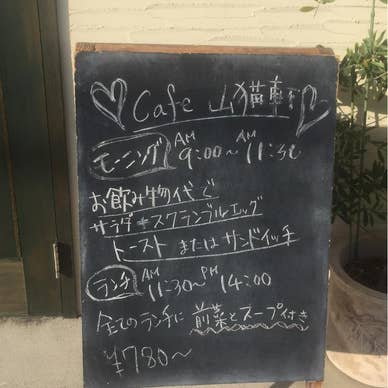 Cafe 山猫軒
モーニング AM 9:00～AM 11:30
お飲み物代で
サラダ＋スクランブルエッグ
トースト またはサンドイッチ
ランチ AM 11:30～PM 14:00
全てのランチに 前菜とスープ付き
¥780～